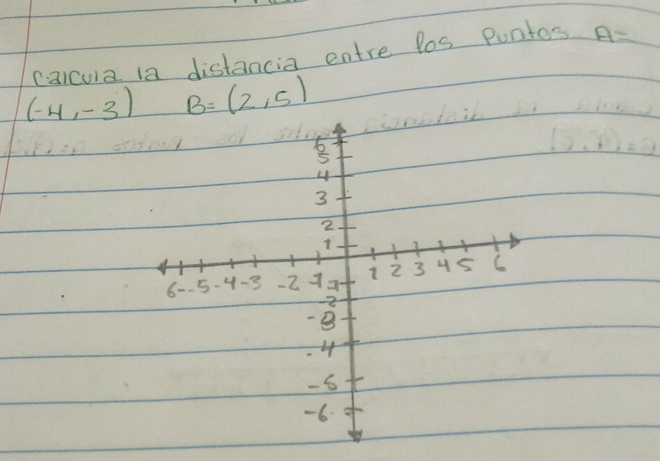 calcula la distancia entre los puntos A=
(-4,-3) B=(2,5)
6
5
4
3
2
1
6--5-4-3 -2 -1 1 2 3 4 5 6
-2
-3
-4
-5
-6